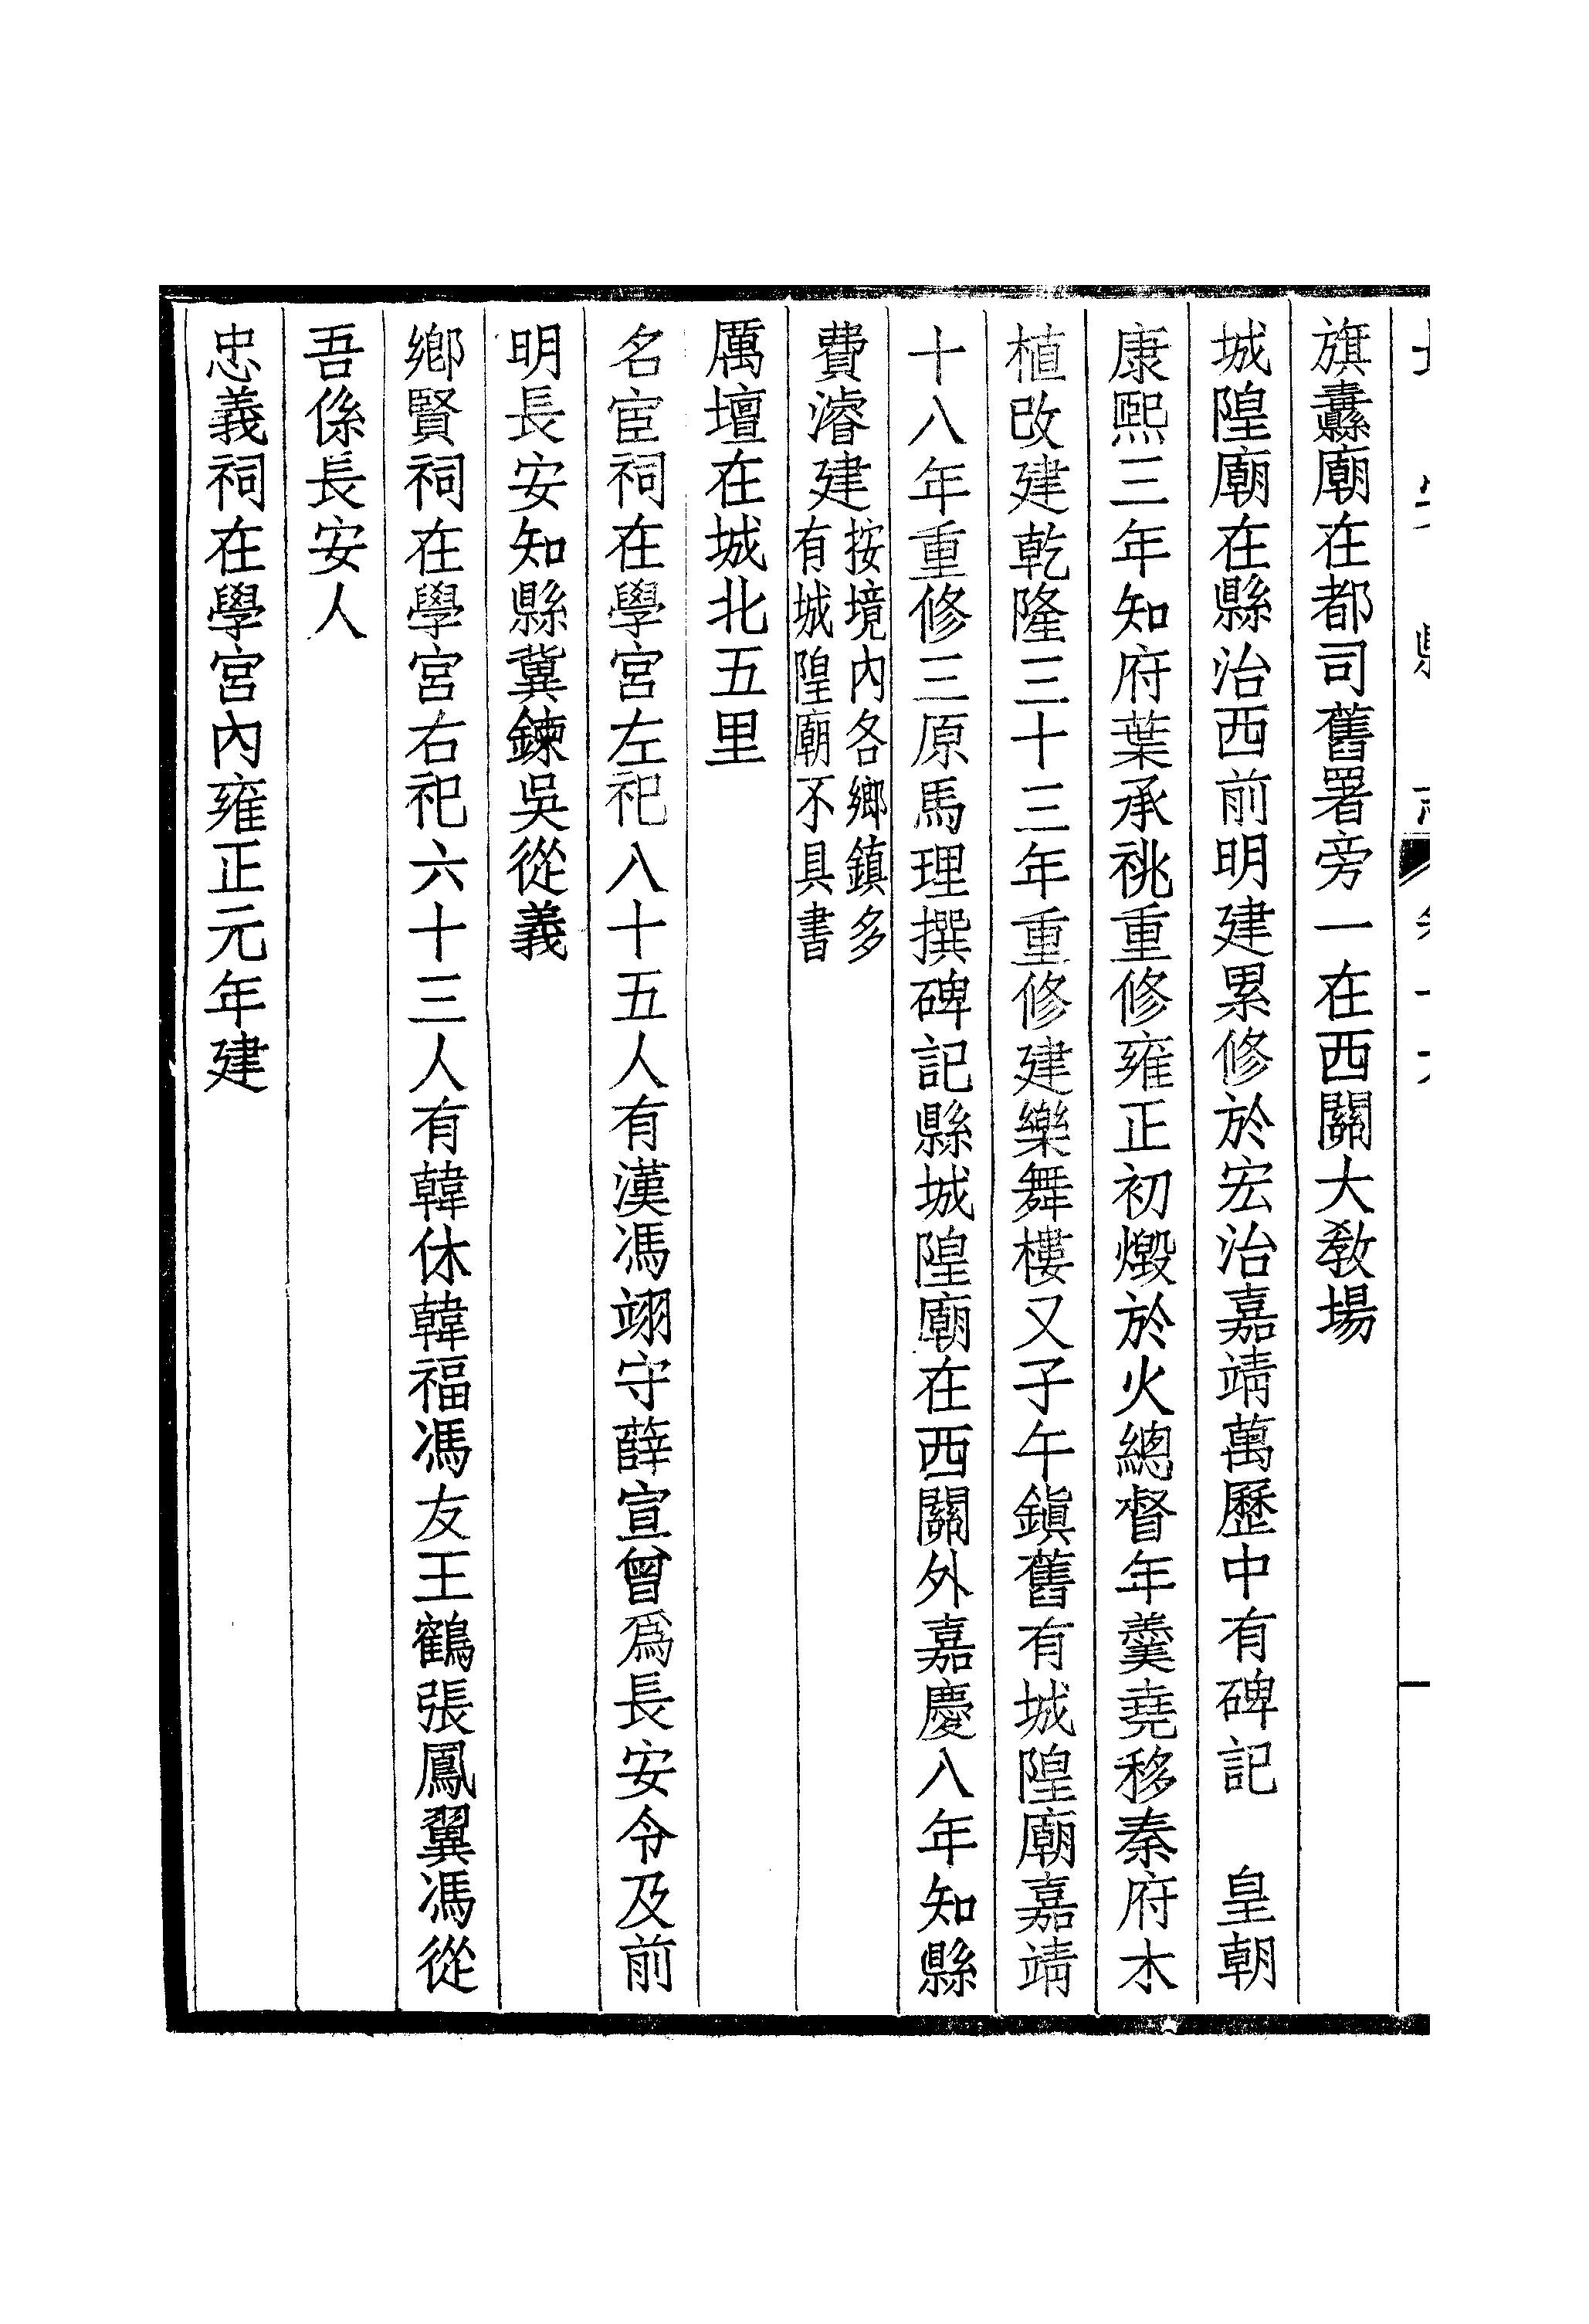 旗纛廟在都司舊署旁一在西關大教場
城隍廟在縣治西前明建累修於宏治嘉靖萬歷中有碑記　皇朝
康熙三年知府葉承祧重修雍正初燬於火總督年羹堯移秦府木
植改建乾隆三十三年重修建樂舞樓又子午鎮舊有城隍廟嘉靖
十八年重修三原馬理撰碑記縣城隍廟在西關外嘉慶八年知縣
費濬建按境內各鄉鎮多
有城隍廟不具書
厲壇在城北五里
名宦祠在學宮左祀八十五人有漢馮翊守薛宣曾為長安令及前
明長安知縣冀鍊吳從義
鄉賢祠在學宮右祀六十三人有韓休韓福馮友王鶴張鳳翼馮從
吾係長安人
忠義祠在學宮內雍正元年建